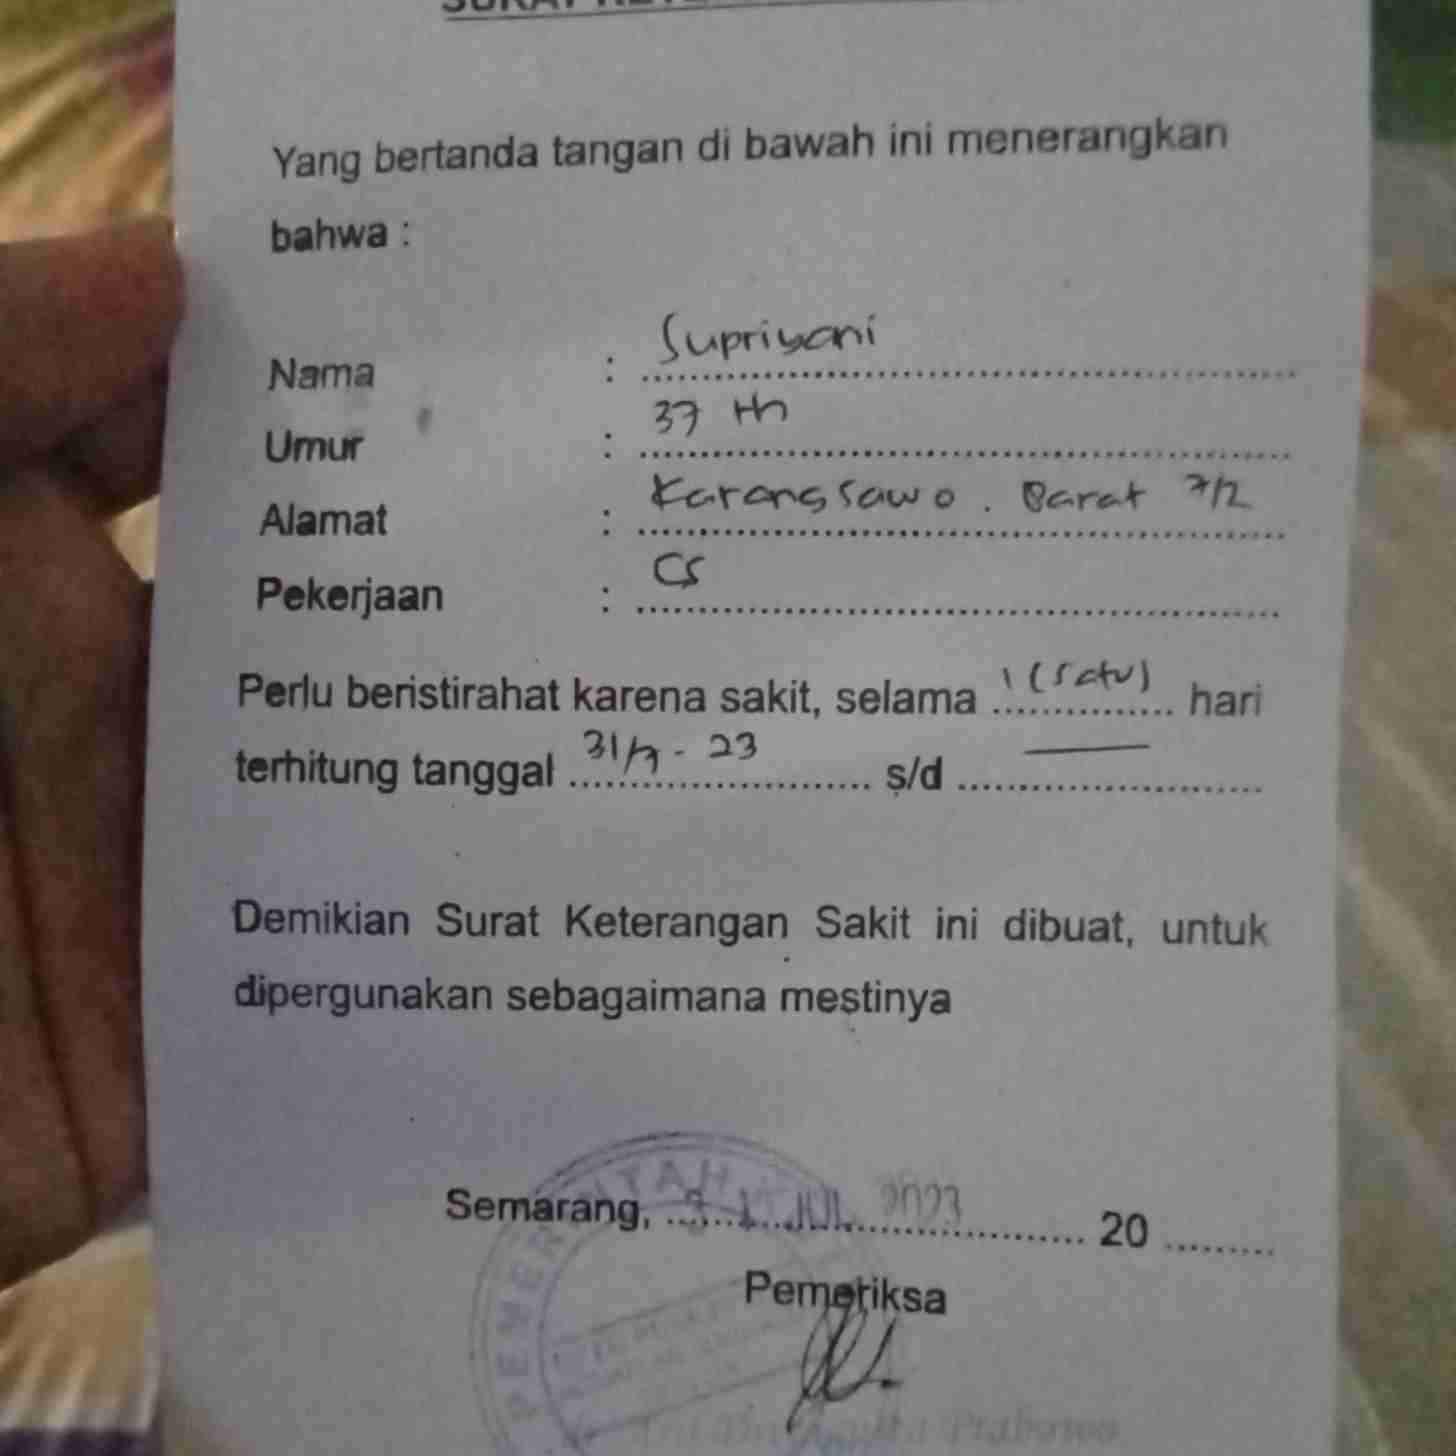 Yang bertanda tangan di bawah ini menerangkan
bahwa :
Nama : Supriyani
Umur : 37 th
Alamat : Karangsawo . Barat 7/2
Pekerjaan : CS
Perlu beristirahat karena sakit, selama 1 (satu) hari
terhitung tanggal 31/7 - 23 s/d —
Demikian Surat Keterangan Sakit ini dibuat, untuk
dipergunakan sebagaimana mestinya
PEMERINTAH
Semarang, 31 JUL 2023 20
Pemeriksa
Prabowo